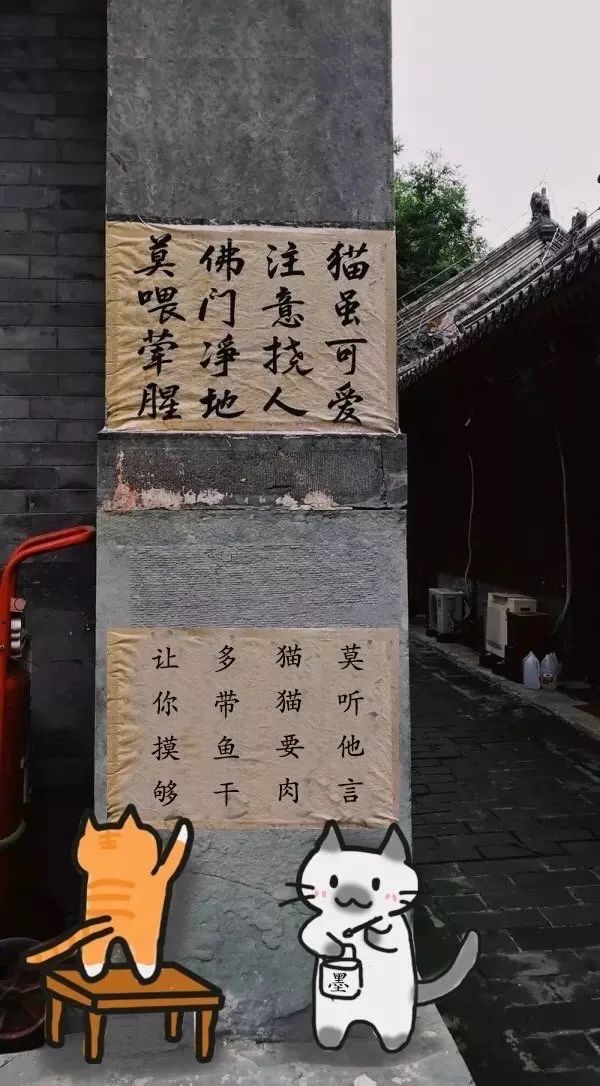 猫虽可爱
注意挠人
佛门净地
莫喂荤腥
莫听他言
猫猫要肉
多带鱼干
让你摸够
墨